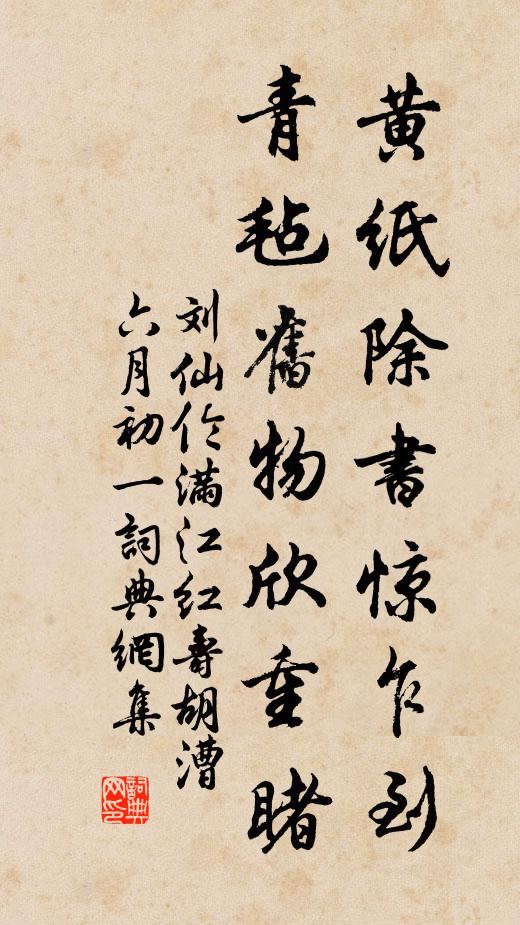 黄紙除書惊乍到
青毡舊物欣重睹
刘仙伦满江红寿胡漕
六月初一詞典網集
詞典
网印